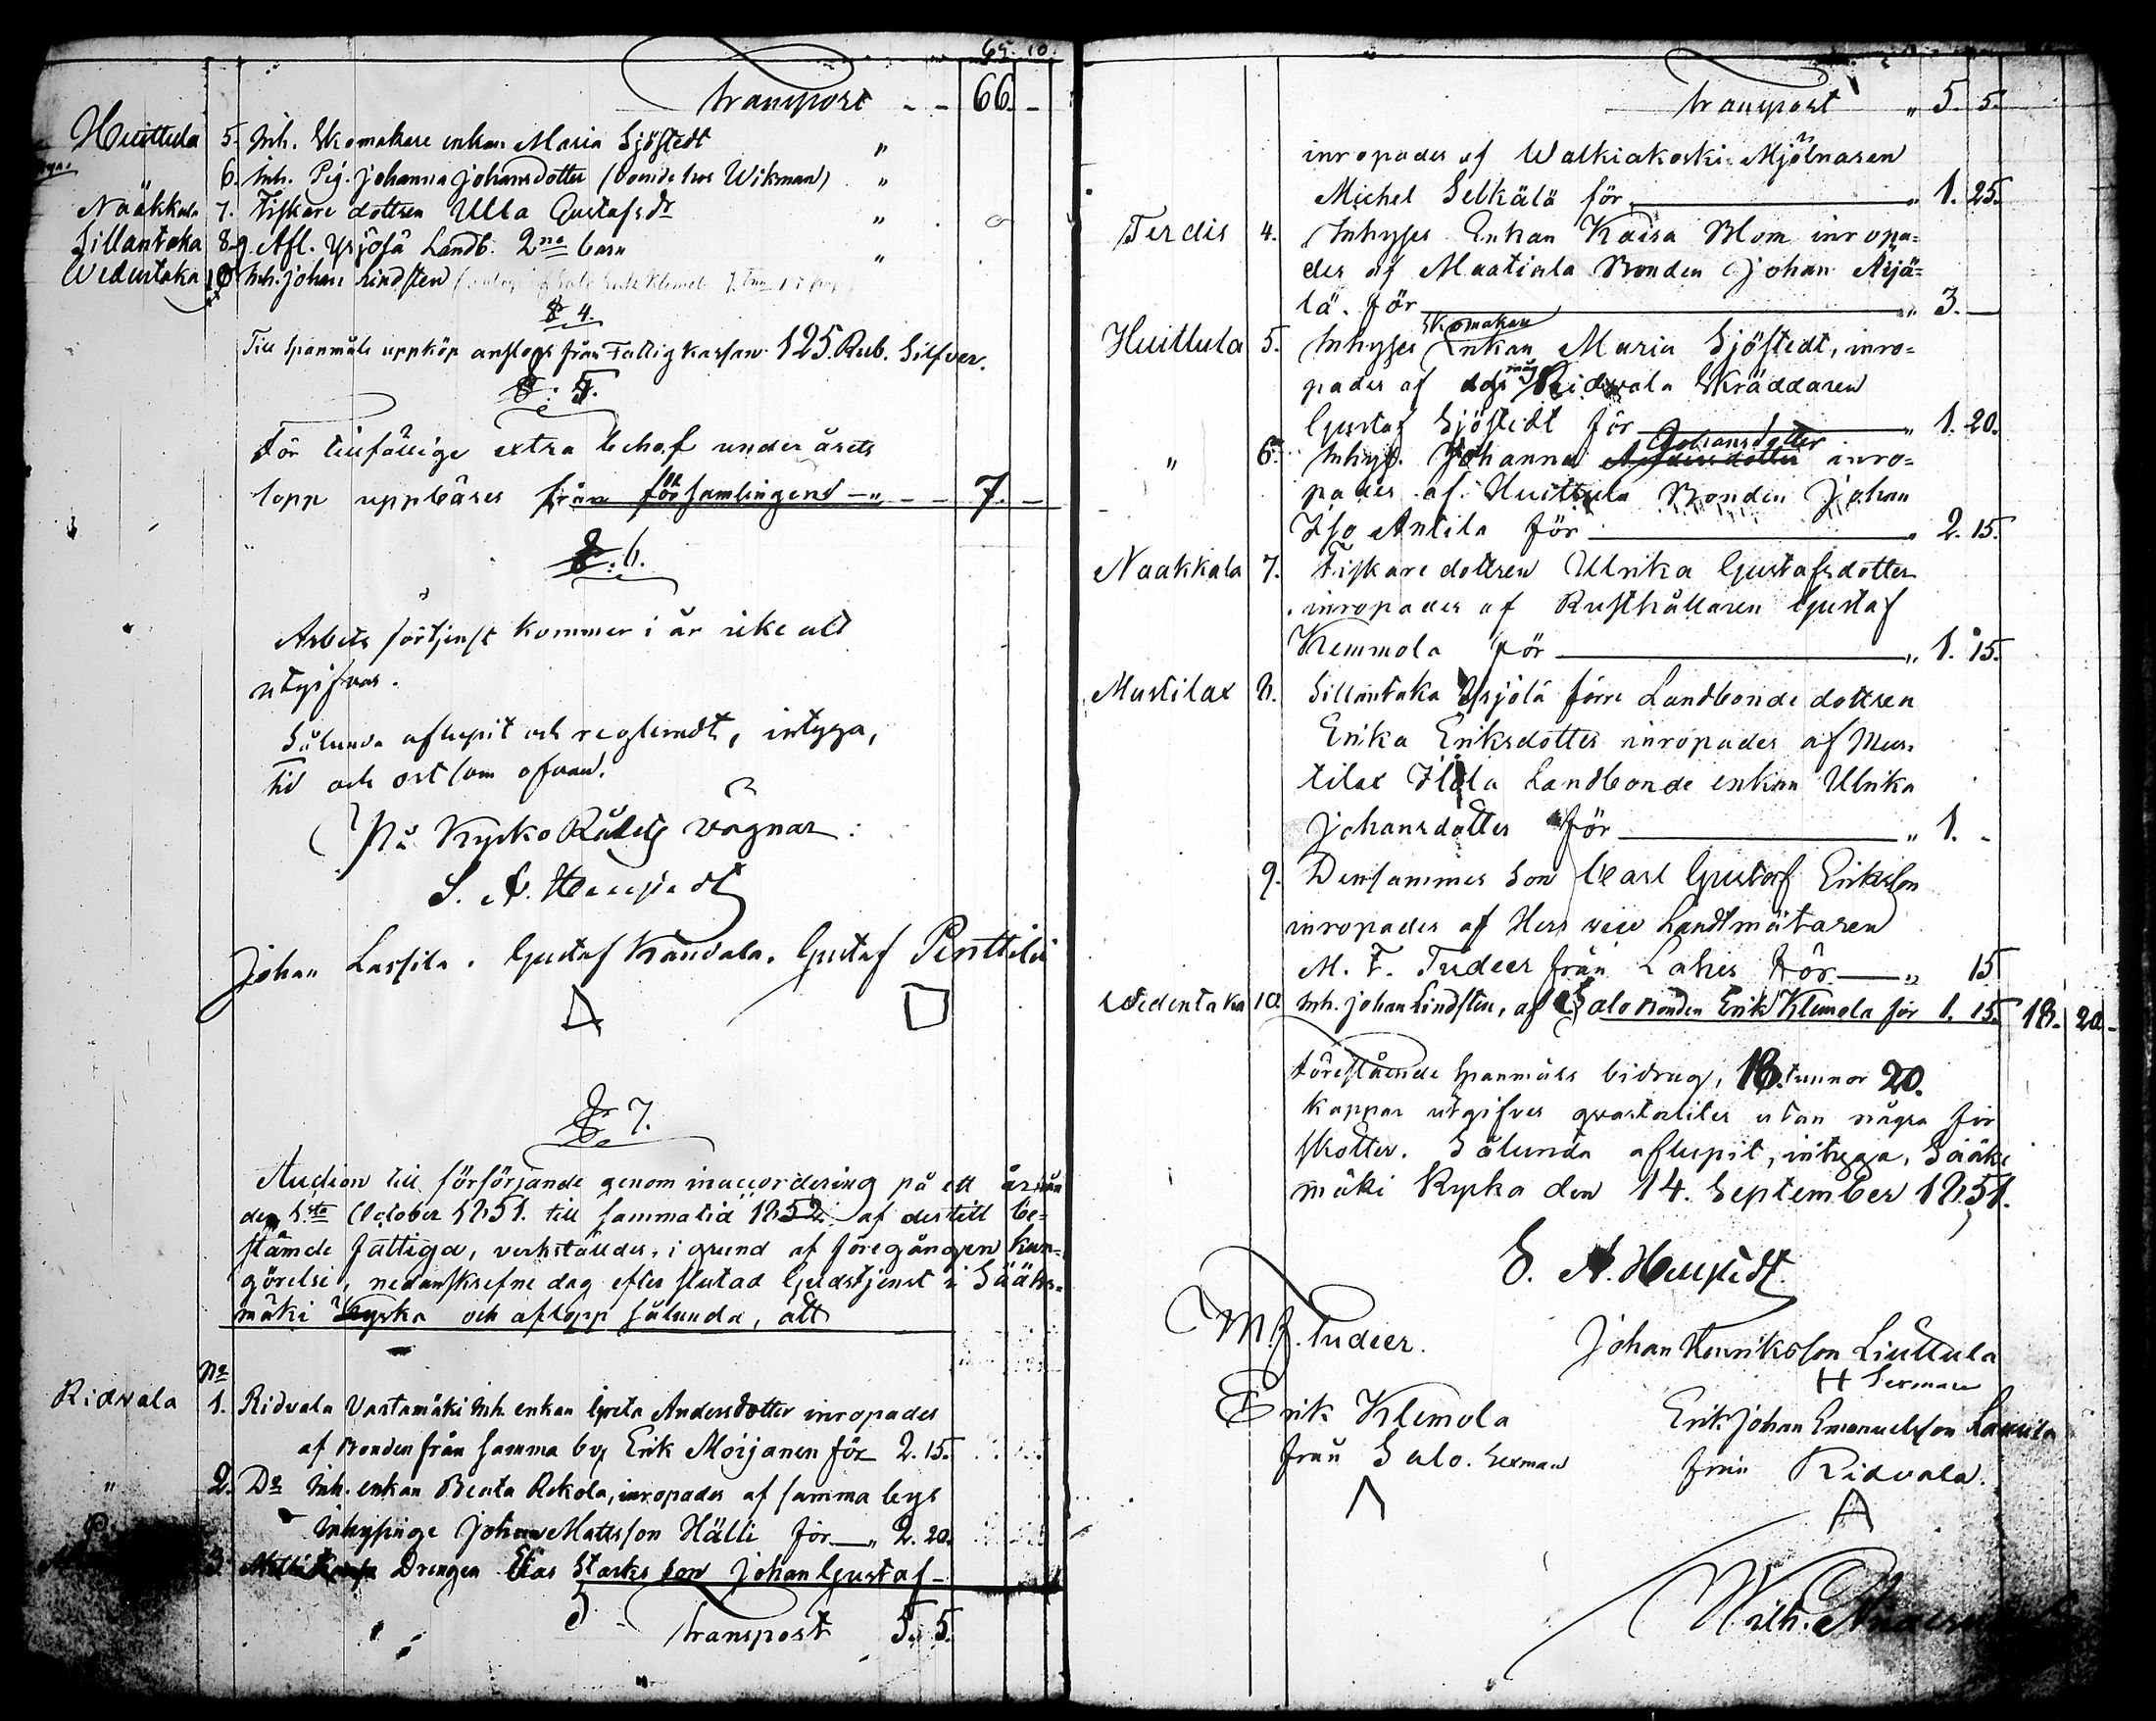 65. 10.
transport - - 66. -
Huittula 5. Inh. Skomakare enkan Maria Sjöstedt "
6. Inh. Pig. Johanna Johansdotter (boende hos Wikman) "
Naakkala 7. Fiskare dottren Ulla Gustafsdr "
Sillantaka 8-9. Afl. Yrjölä Landb. 2ne barn "
Wedentaka 10 Inh. Johan Lindsten
§ 4.
Till Spanmåls uppköp anslogs från Fattigkassan 125. Rub. Silfver.
§: 5.
För tillfällige extra behof under årets
lopp uppbäres från församlingens - " - - 7. -
§: 6.
Arbets förtjenst kommer i år icke att
utgifvas.
Sålunda aflupit och regleradt, intyga,
tid och ort som ofvan.
På Kyrko Rådets vägnar:
S. A. Heurlin
Johan Lassila. Gustaf Kandala. Gustaf Penttilä
§ 7.
Auction till försörjande genom inaccordering på ett år från
den 1sta October 1851. till samma tid 1852. af dertill be=
stämde fattiga, verkställdes, i grund af föregången kun=
görelse, nedanskrefne dag efter slutad Gudstjenst i Sääks=
mäki Kyrka och aflopp sålunda, att
No
Ridvala 1. Ridvala Vastamäki Inh. enkan Greta Andersdotter inropades
af Bonden från samma by Erik Moijanen för 2. 15.
" 2. Do Inh. enkan Beata Rekola, inropades af samma bys
Inhysinge Johan Mattsson Hälli för " 2. 20.
3. Drengen Elias Starks son Johan Gustaf -
transport 5. 5.
transport " 5. 5.
inropades af Walkiakoski Mjölnaren
Michel Selkälä för " 1. 25.
Terdis 4. Inhyses Enkan Kaisa Blom inropa=
des af Maatiala Bonden Johan Arjä=
lä. för " 3. -
Huittula 5. Inhyses Skomakare Enkan Maria Sjöstedt, inro=
pades af dess måg Ridvala Skräddaren
Gustaf Sjöstedt för " 1. 20.
" 6. Inhys. Johanna Johansdotter inro=
pades af Huittula Bonden Johan
Iso Antila för " 2. 15.
Naakkala 7. Fiskare dottren Ulrika Gustafsdotter
inropades af Rusthållaren Gustaf
Kemmola för " 1. 15.
Mustilax 8. Sillantaka Yrjölä förre Landbonde dottren
Erika Eriksdotter inropades af Mus=
tilax Ilola Landbonde enkan Ulrika
Johansdotter för " 1. -
9. Densammes son Carl Gustaf Eriksson
inropades af Herr vice Landtmätaren
M. F. Tudeer från Lahis för " 15
Wedentaka 10 Inh. Johan Lindsten, af Salo Bonden Erik Klemola för 1. 15. 18. 20.
Förestående Spanmåls bidrag, 18. tunnor 20.
kappar utgifves qvartaliter utan några för
skotter. Sålunda aflupit, intyga, Sääks
mäki Kyrka den 14. September 1851.
S. A. Heurlin
M. F. Tudeer.
Johan Henriksson Liuttula
H Sexman
Erik Klemola
från Salo. Sexman
Erik Johan Emanuelsson Laurila
från Ridvala.
Wilh.